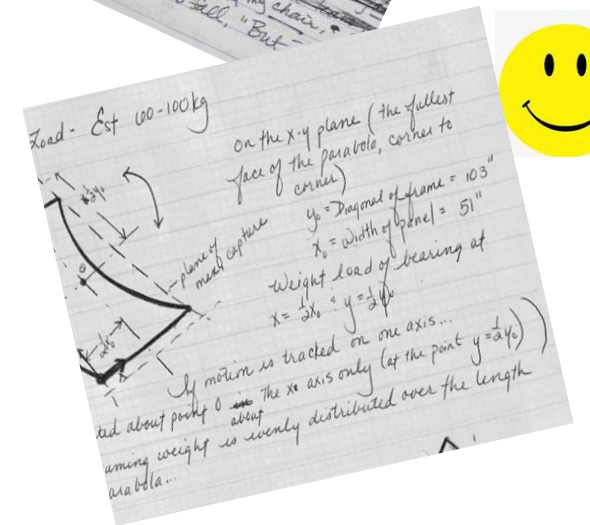 chair.
fall, "But
Load - Est 60-100kg
on the x-y plane (the fullest
face of the parabola, corner to
corner)
y₀ = Diagonal of frame = 103"
x₀ = Width of panel = 51"
½y₀
plane of
max capture
Weight load of bearing at
x = ½x₀ ; y = ½y₀
0
½x₀
x
If motion is tracked on one axis...
ted about point O the x₀ axis only (at the point y = ½y₀))
about
uming weight is evenly distributed over the length
arabola...